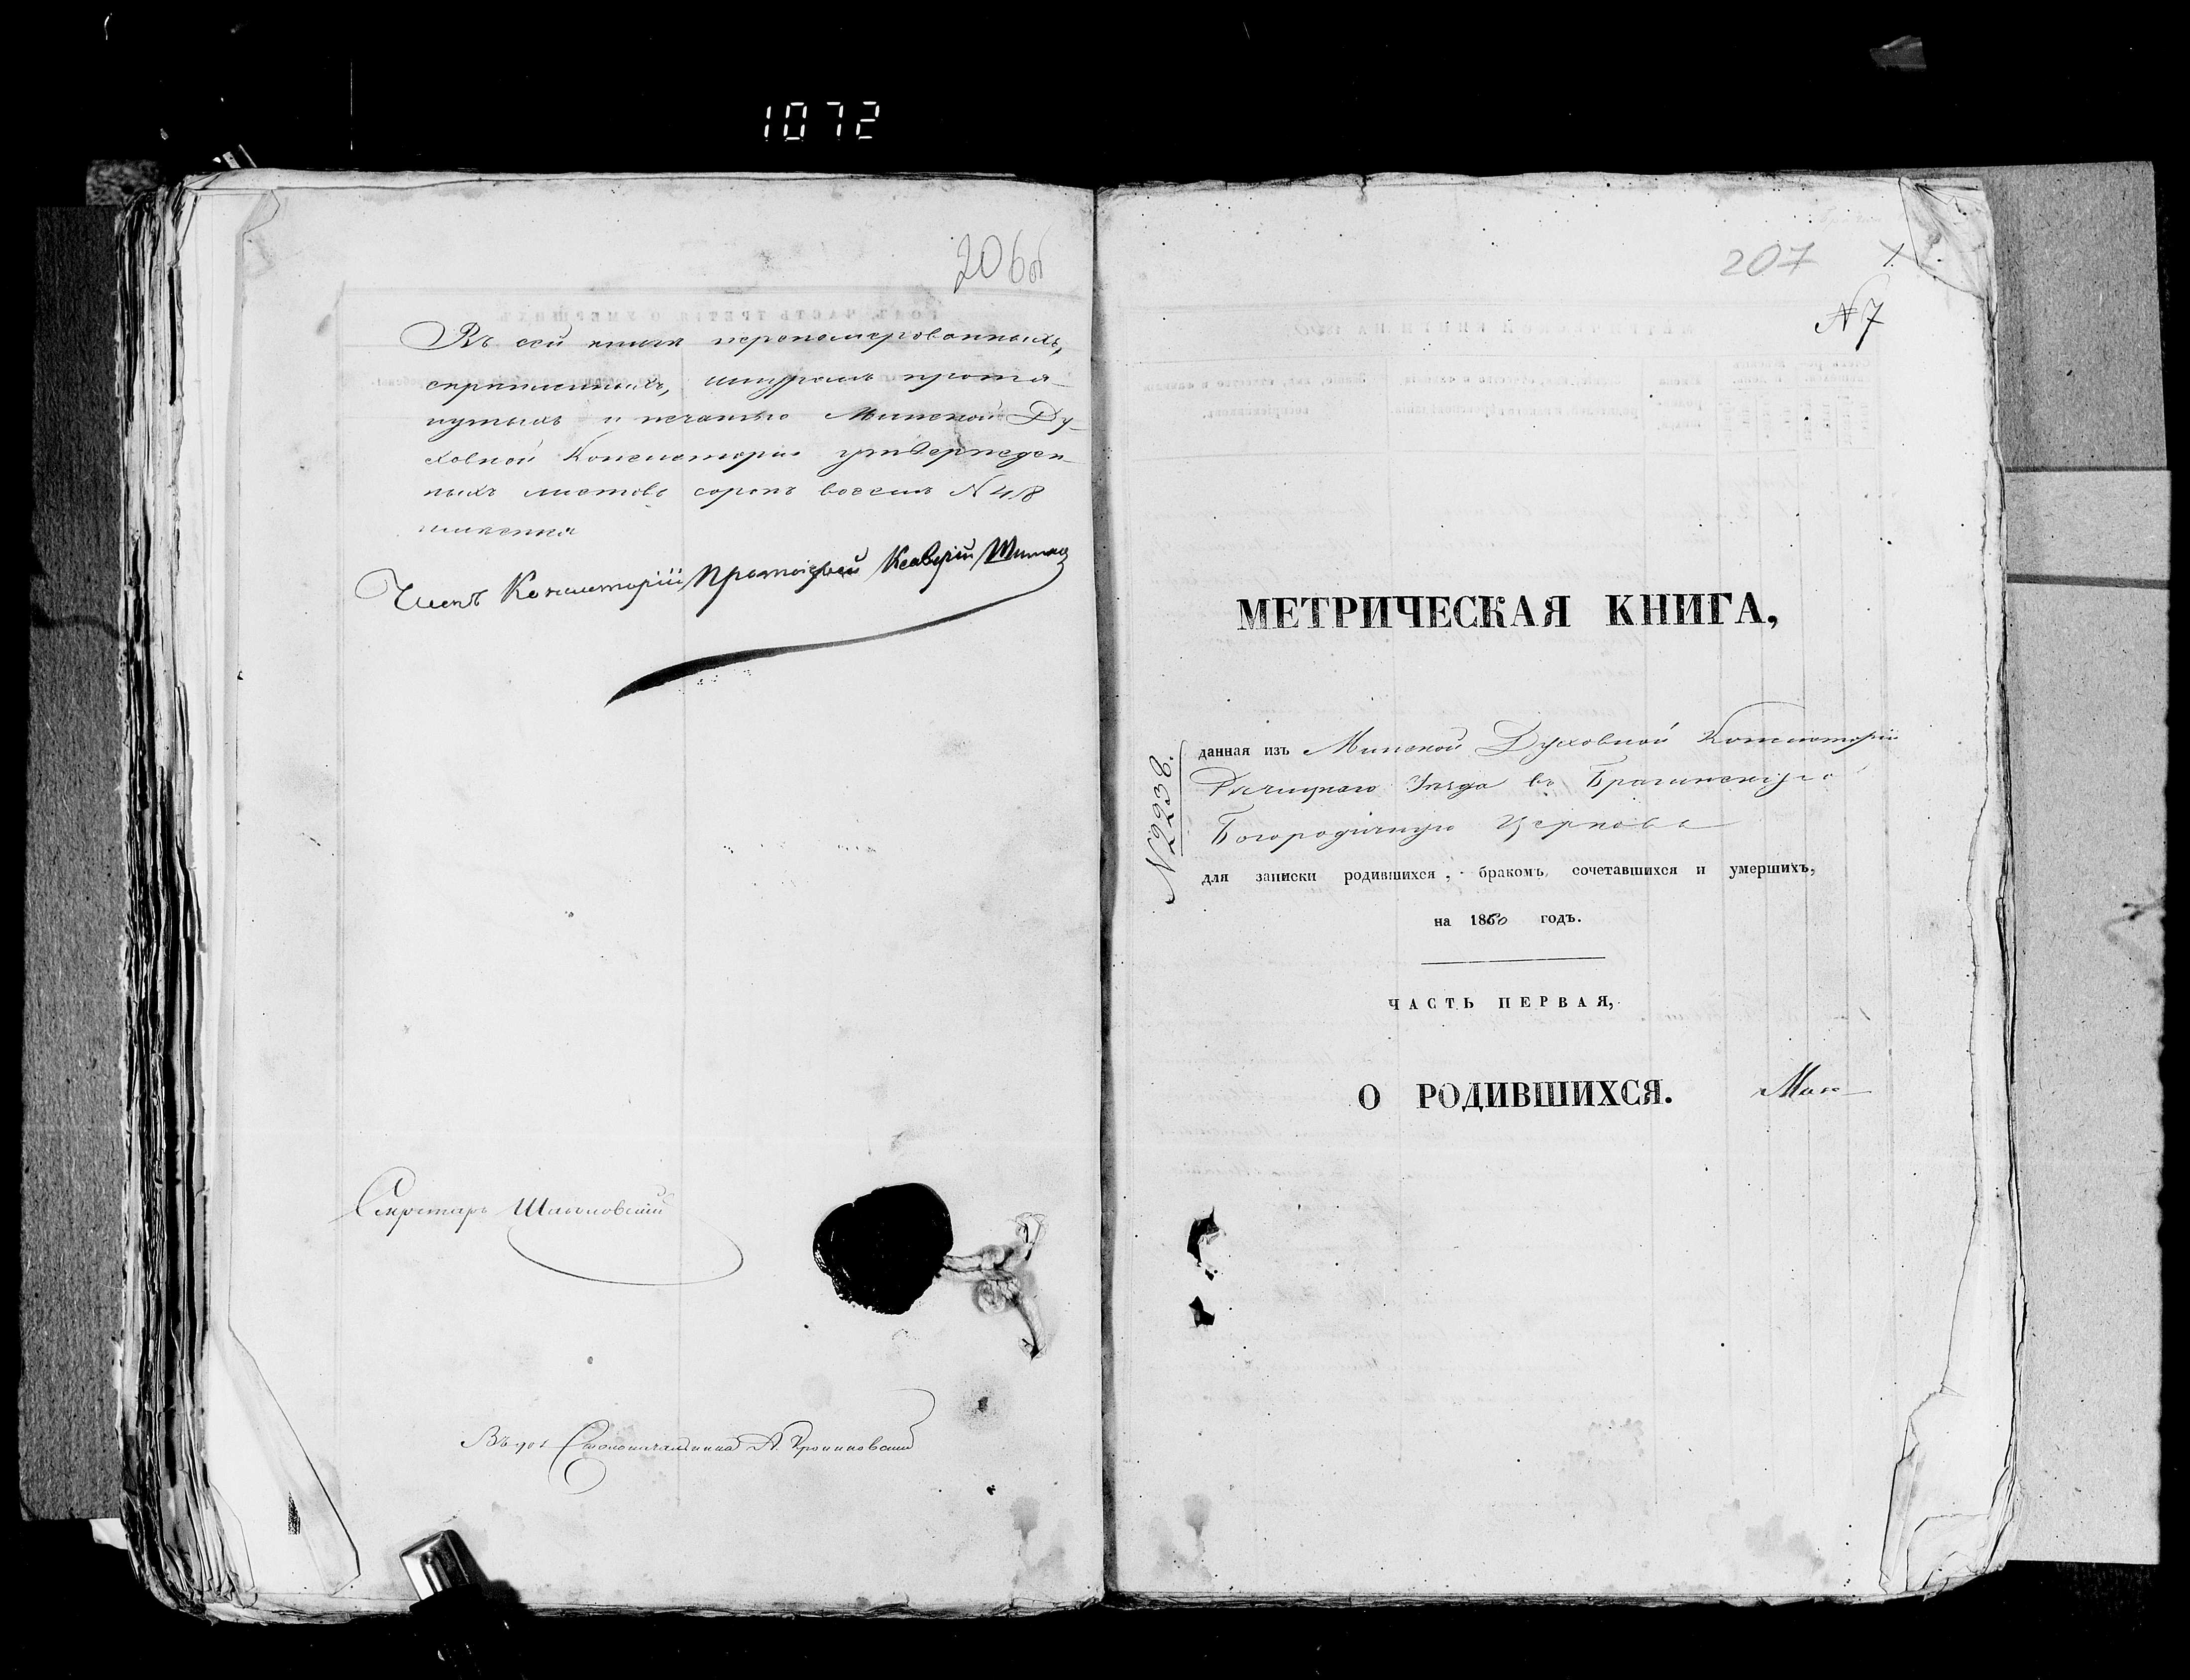 1072
206об
Въ сей книгѣ переномерованныхъ,
скрѣпленныхъ, шнуромъ протя-
нутыхъ и печатью Минской Ду-
ховной Консисторіи утвержден-
ныхъ листовъ сорокъ восемь N 48
Членъ Консисторіи Протоіерей Ксаверій
Секретарь
Столоначальника А.
207
1.
N 7
МЕТРИЧЕСКАЯ КНИГА,
N 2238.
данная изъ Минской Духовной Консисторіи
Рѣчицкаго Уѣзда въ Брагинскую
Богородичную Церковь
для записки родившихся, бракомъ сочетавшихся и умершихъ,
на 1860 годъ.
ЧАСТЬ ПЕРВАЯ,
О РОДИВШИХСЯ.